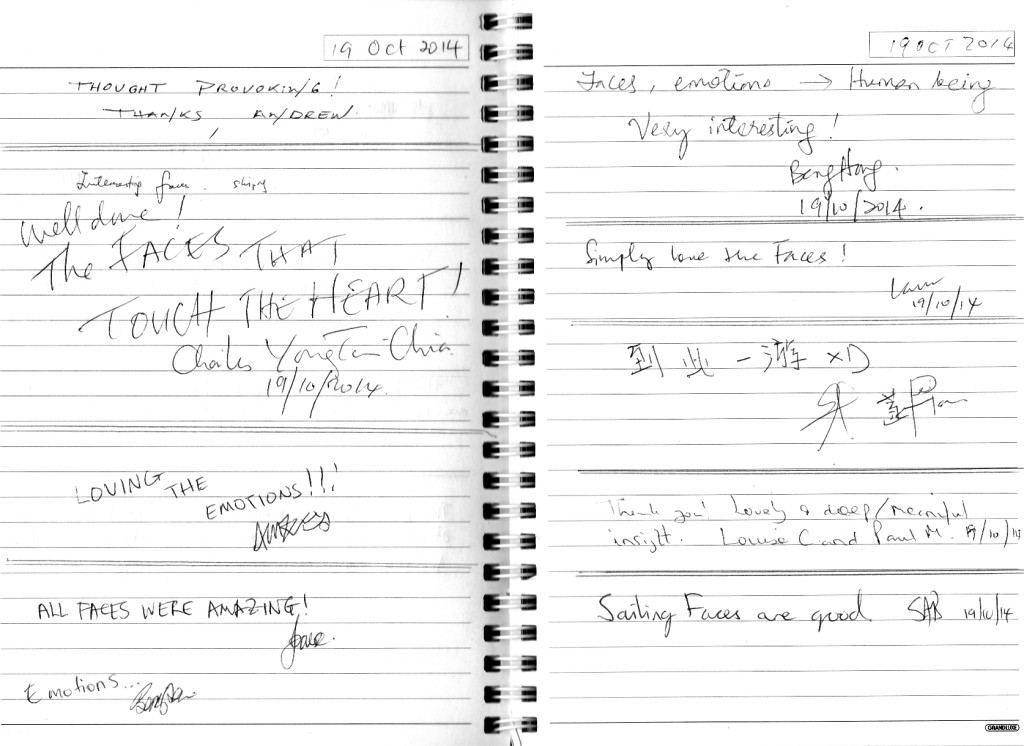 19 Oct 2014
THOUGHT PROVOKING!
THANKS ANDREW.
Interesting faces.
Well done!
The FACES THAT
TOUCH THE HEART!
Charles Yong
19/10/2014.
LOVING THE
EMOTIONS!!!
ALL FACES WERE AMAZING!
Emotions...
19 OCT 2014
Faces, emotions → Human being
Very interesting!
Beng Hong.
19/10/2014.
Simply love the Faces!
19/10/14
到此一游 XD
Thank you! Lovely & deep/meaningful
insight. Louise C. and Paul M. 19/10/14
Sailing Faces are good SAB 19/10/14
GRANDLUXE